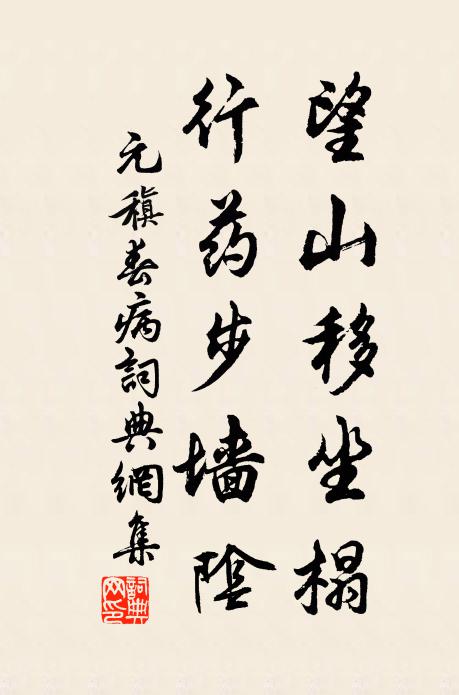 望山移坐榻
行药步墙陰
元稹春病詞典網集
詞典网印